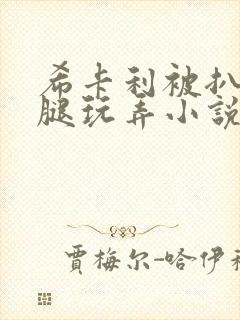 希卡利被扒
腿玩弄小說
賈梅尔-哈伊科